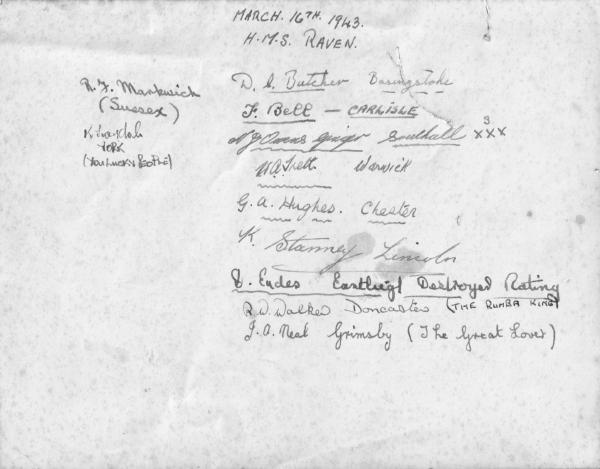 MARCH. 16TH. 1943.
H.M.S. RAVEN.
R. F. Markwich
(Sussex)
K.
YORK
(YOU LUCKY PEOPLE)
D. S. Butcher Basingstoke
F. Bell — CARLISLE
Owens ginger Southall xxx
3
W.A. Trett Warwick
G. A. Hughes. Chester
K. Stanney Lincoln
Eades Eastleigh Destroyed Rating
R. W. Walker Doncaster (THE RUMBA KING)
J. A. Neal Grimsby (The Great Lover)